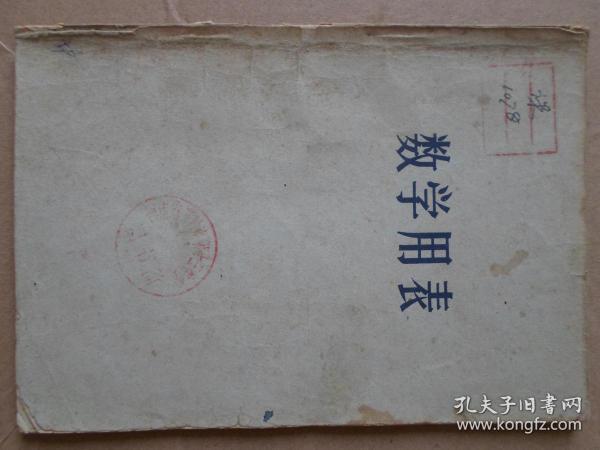 数学用表
课
1078
孔夫子旧書网
www.kongfz.com